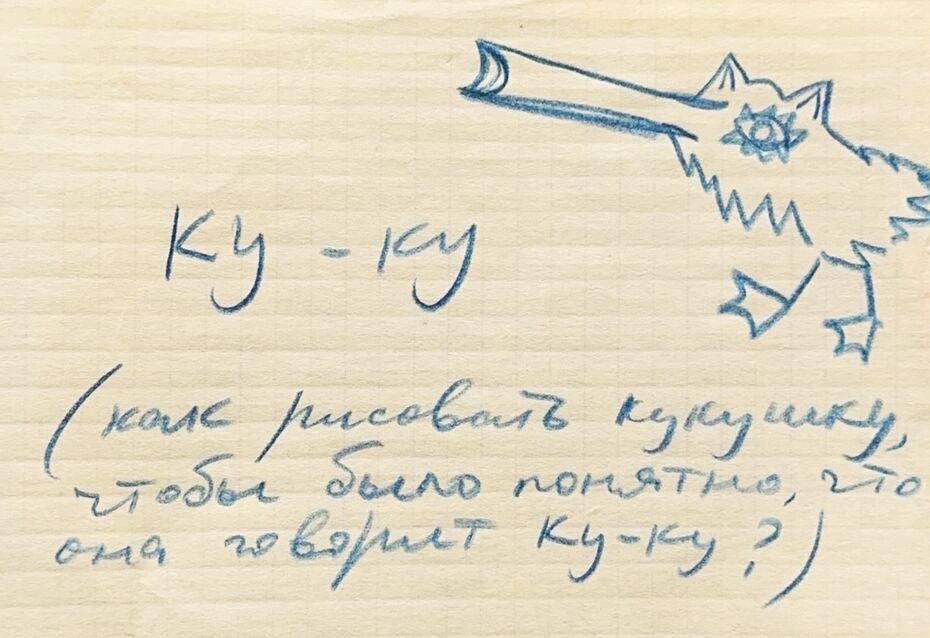 Ку - ку
(как рисовать кукушку,
чтобы было понятно, что
она говорит Ку-ку?)